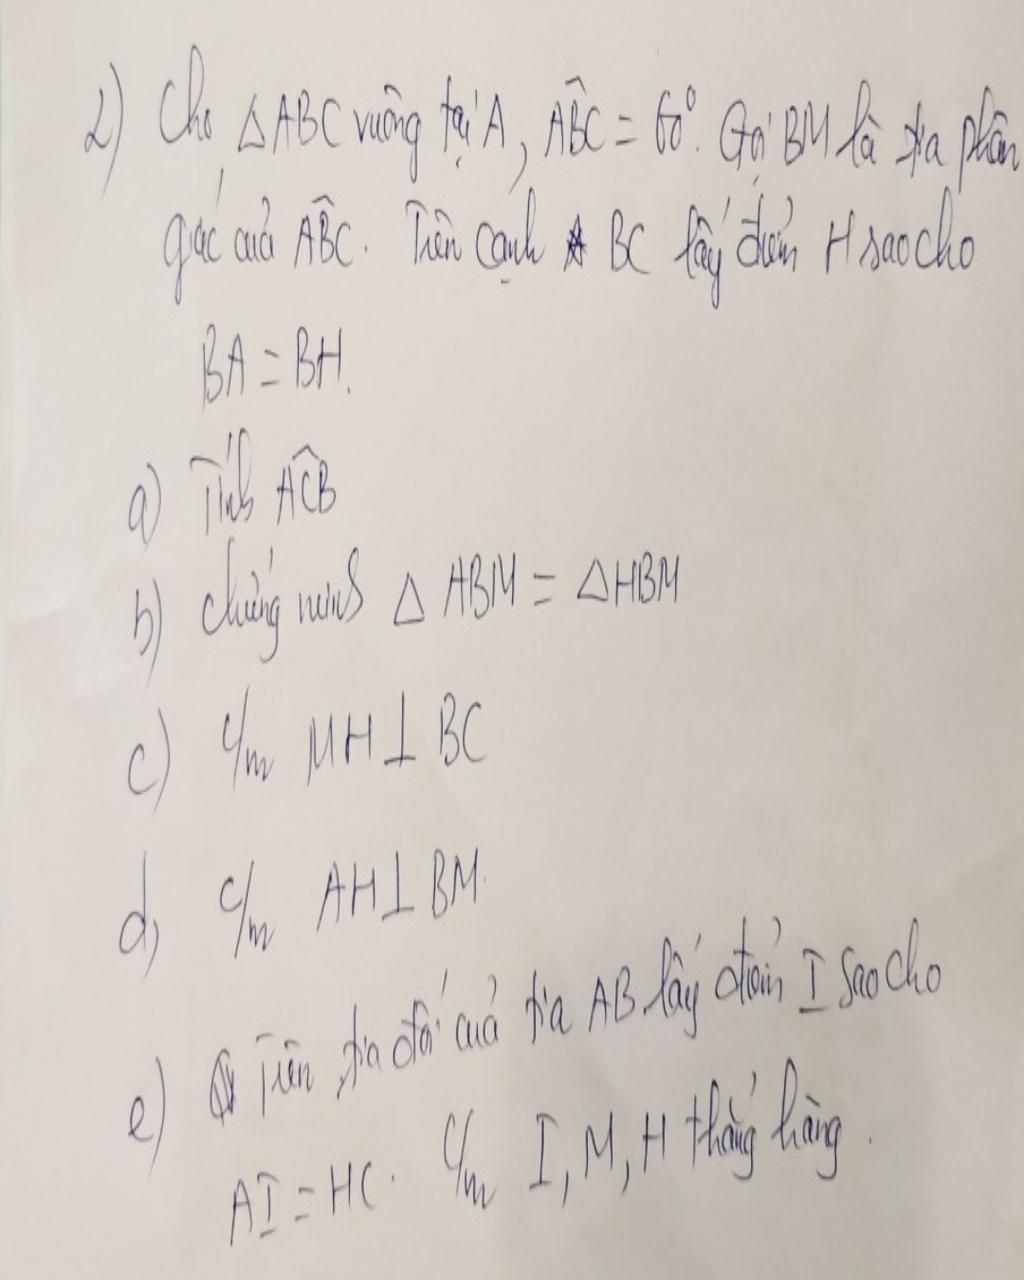 2) Cho △ABC vuông tại A, ABC̑ = 60°. Gọi BM là tia phân
giác của ABC̑. Trên cạnh BC lấy điểm H sao cho
BA = BH.
a) Tính ACB̑
b) chứng minh △ ABM = △HBM
c) c/m MH⊥ BC
d) c/m AH⊥ BM.
e) Trên tia đối của tia AB lấy điểm I sao cho
AI = HC. c/m I, M, H thẳng hàng.